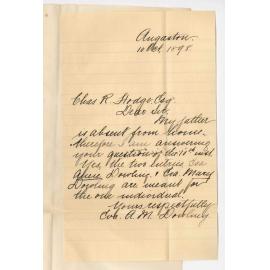 Angaston.
10 Oct. 1898.
Chas R. Hodge, Esq.
Dear Sir,
My father
is absent from home
therefore I am answering
your question of the 10th inst.
Yes, the two entries Eva
Alice Dowling & Eva Mary
Dowling are meant for
the one individual.
Yours respectfully
A. M. Dowling